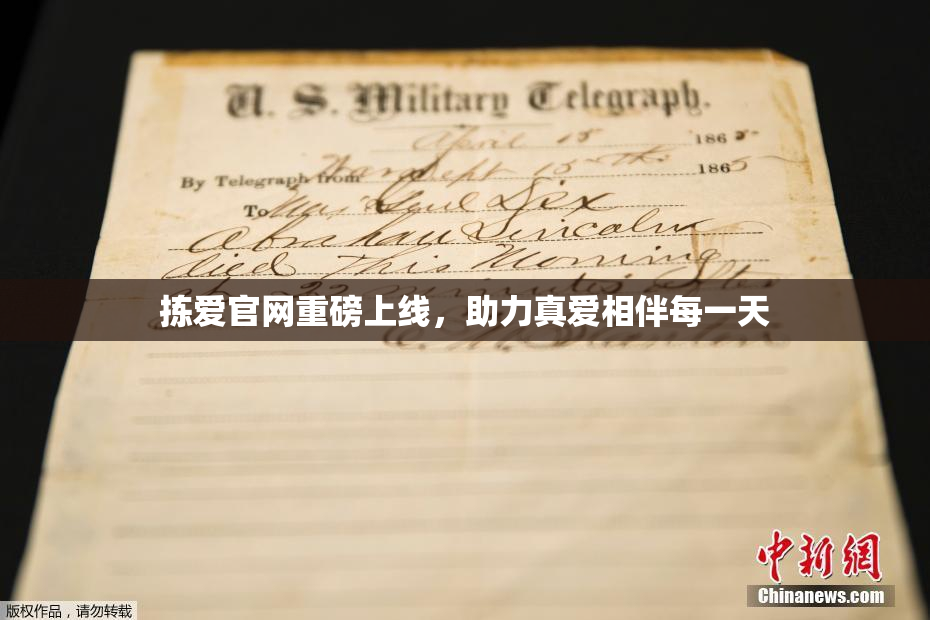 U. S. Military Telegraph.
April 15 1865
By Telegraph from War Dept 15th 1865
To Maj Genl Dix
Abraham Lincoln
died This Morning
at 22 minutes after
拣爱官网重磅上线，助力真爱相伴每一天
E. M. Stanton
中新網
Chinanews.com
版权作品，请勿转载